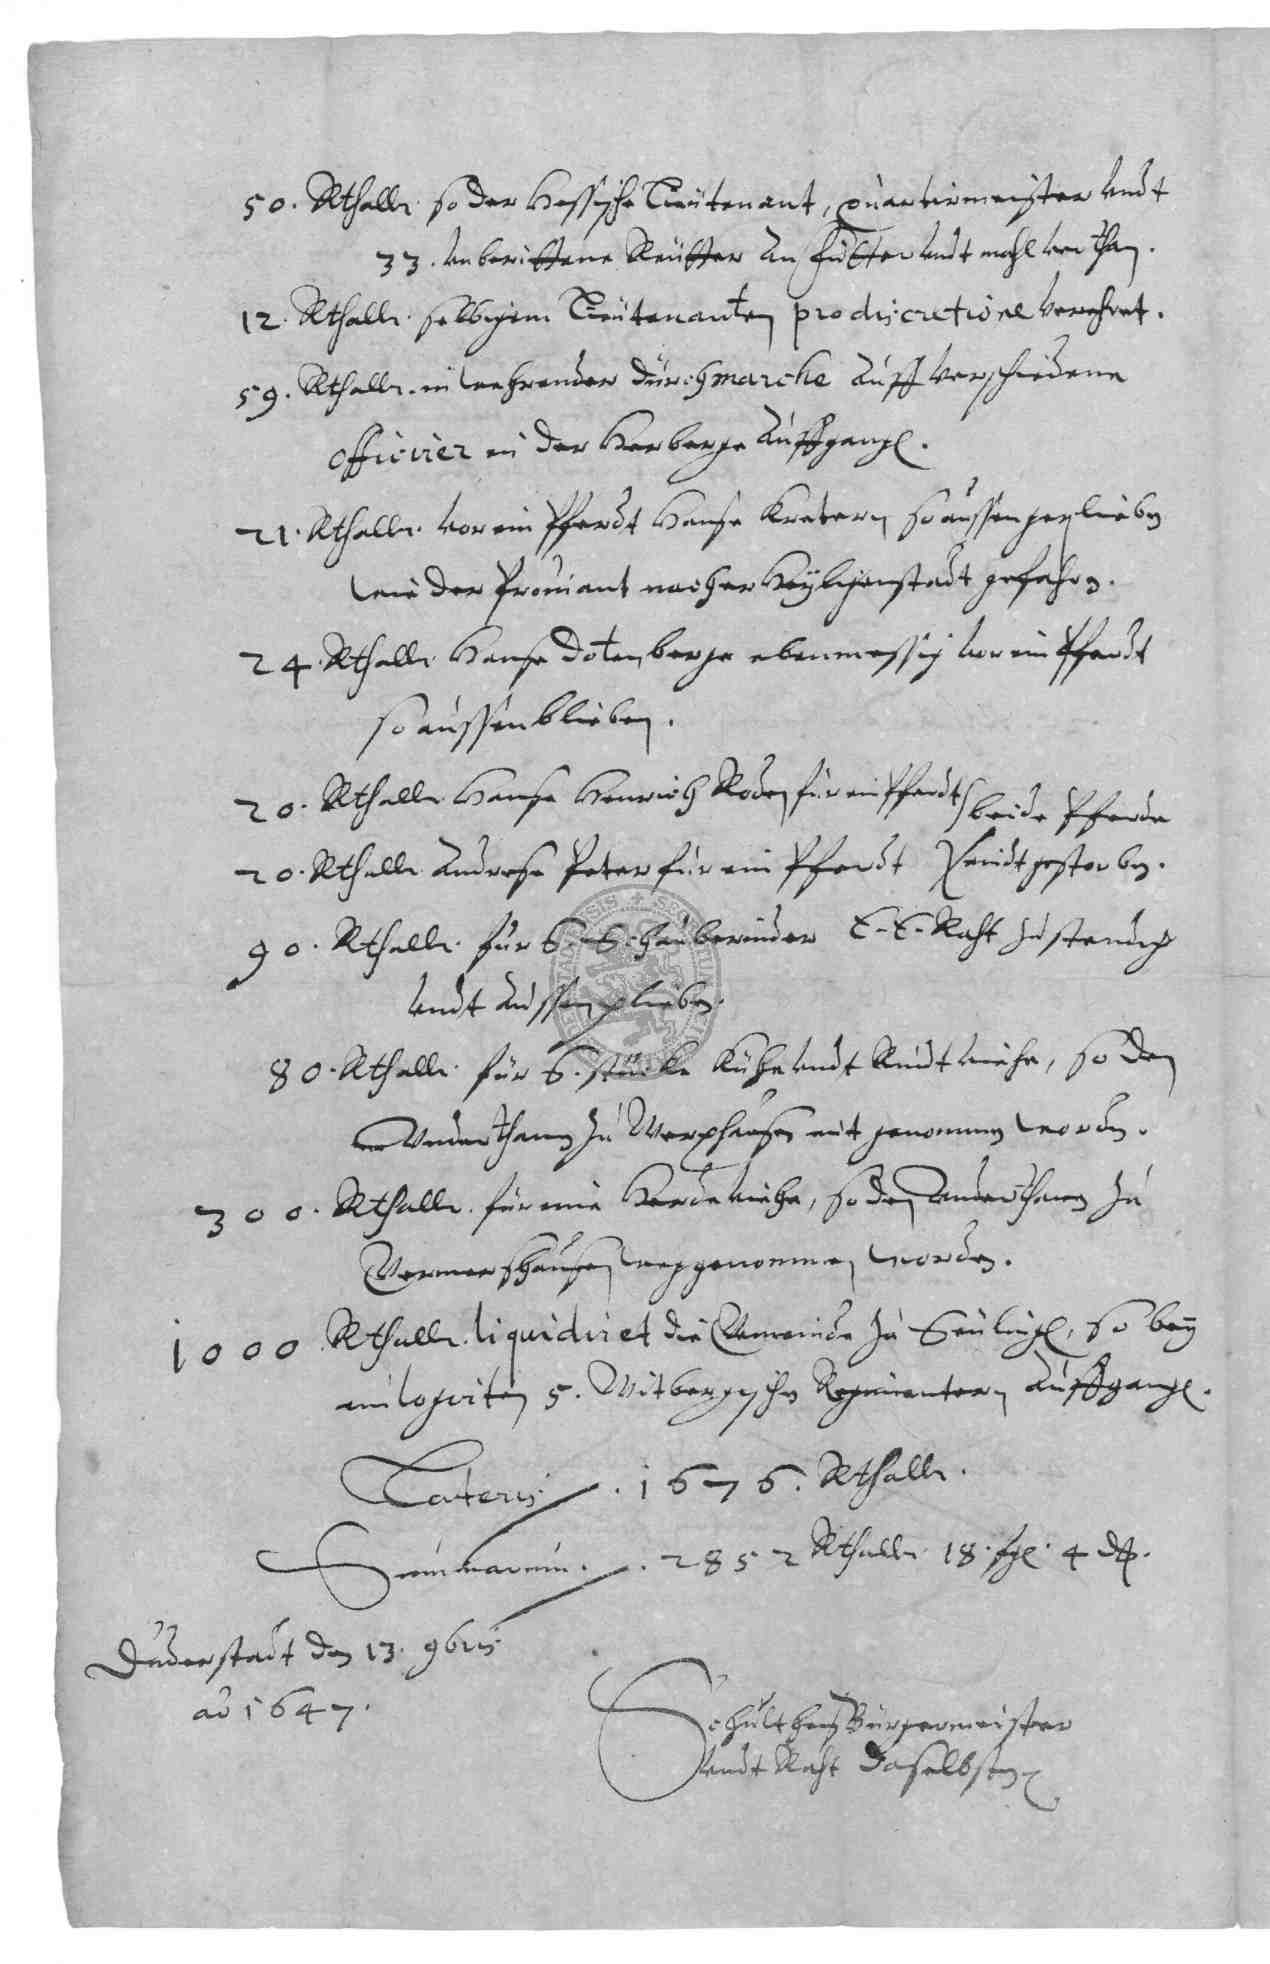 50. Rthallr. so der Hessische Lieütenant, quartirmeister undt
33. unberittene Reütter an fütter undt mahl verthan.
12. Rthallr. selbigem Lieütenanten pro discretione verehret.
59. Rthallr. in wehrender dürchmarche auff verschiedene
officirer in der Herberge auffgangen.
21. Rthallr. vor ein Pferdt Hanse Kretern so aussen geplieben
wie der Proviant nacher Heyligenstadt gefahren.
24. Rthallr. Hanse Dotenberge ebenmessig vor ein Pferdt
so aussenblieben.
20. Rthallr. Hanse Henrich Roden für ein Pferdt beide Pferde
20. Rthallr. Andrese Peter für ein Pferdt seindt gestorben.
90. Rthallr. für 6. rinder E. E. Raht zustendig
undt aussenplieben.
80. Rthallr. für 6. stücke Kühe undt Rindtviehe, so den
Underthanen zu Werxhausen mit genommen worden.
300. Rthallr. für eine Herde viehe, so den Underthanen zu
Germershausen weggenommen worden.
1000 Rthallr. liquidiret die Gemeinde zu Seulingen, so bey
einlogirten 5. Regimentern auffgangen.
Lateris. 1676. Rthallr.
Summarum. 2852 Rthallr. 18. sgl. 4 d.
Duderstadt den 13. 9bris
ao 1647.
Schultheis Bürgermeister
undt Raht daselbsten